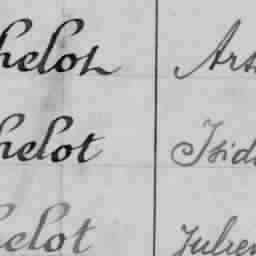 helot Ars
helot Isid
helot Julien